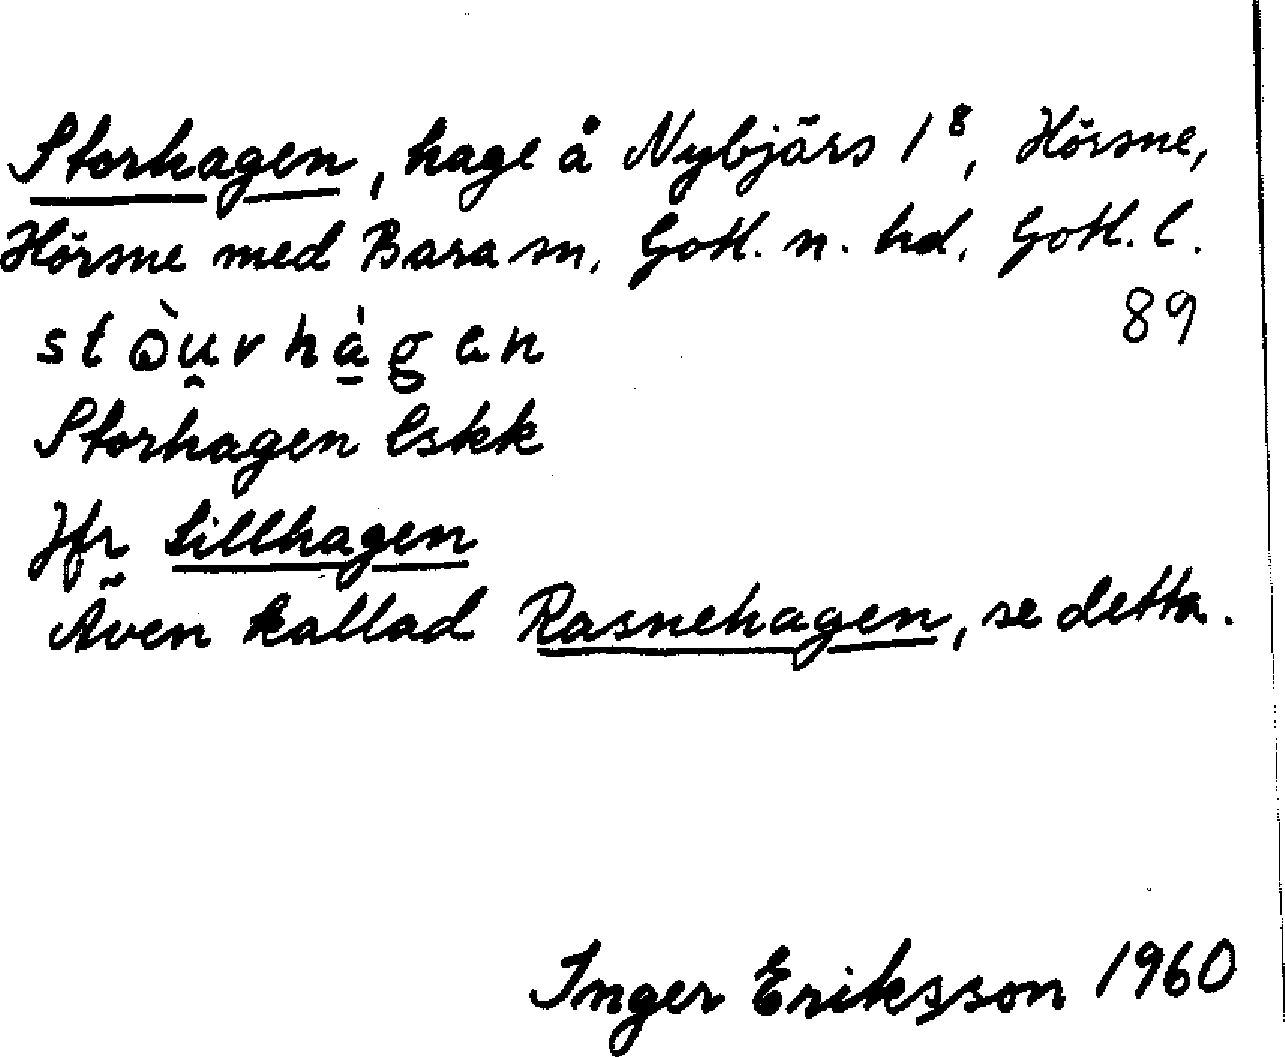 Storhagen, hage å Nybjärs 1⁸, Hörsne,
Hörsne med Bara sn, Gotl. n. hd, Gotl. l.
89
stò̱u̯rhàgan
Storhagen Eskk
Jfr Lillhagen
Även kallad Rasnehagen, se detta.
Inger Eriksson 1960